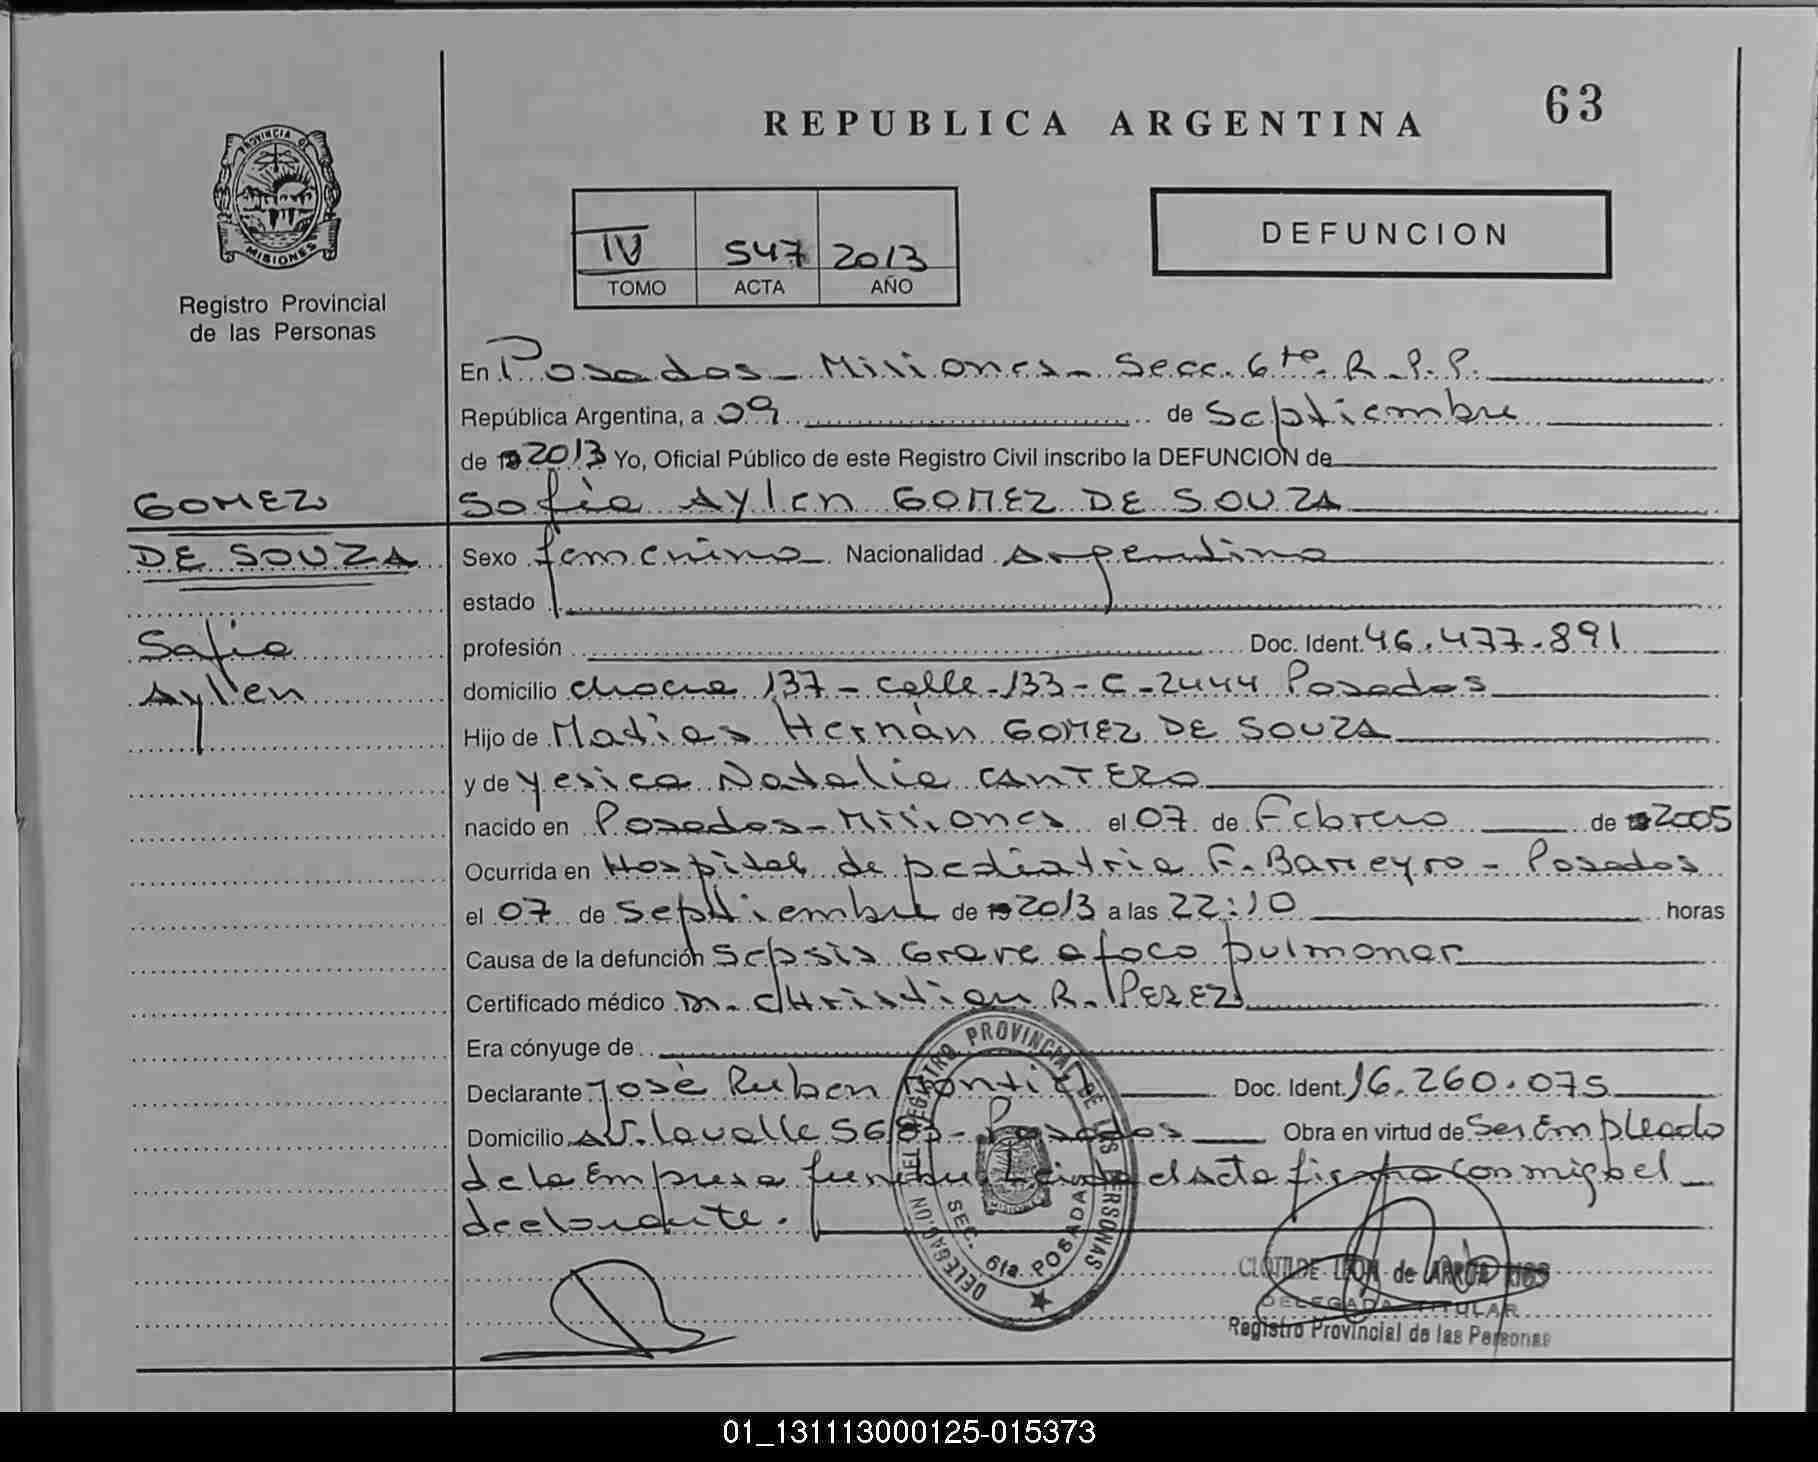 63
REPUBLICA ARGENTINA
PROVINCIA DE MISIONES
Registro Provincial
de las Personas
IV 547 2013
TOMO ACTA AÑO
DEFUNCION
En Posadas - Misiones - Secc. 6ta. R.P.P.
República Argentina, a 09 de Septiembre
de 2013 Yo, Oficial Público de este Registro Civil inscribo la DEFUNCION de
GOMEZ
DE SOUZA
Sofia
Aylen
Sofia Aylen GOMEZ DE SOUZA
Sexo femenino Nacionalidad Argentina
estado
profesión Doc. Ident. 46.477.891
domicilio chacra 137 - calle - 133 - C - 2444 Posadas
Hijo de Matias Hernán GOMEZ DE SOUZA
y de Yesica Natalia CANTERO
nacido en Posadas - Misiones el 07 de Febrero de 2005
Ocurrida en Hospital de pediatria F. Barreyro - Posadas
el 07 de Septiembre de 2013 a las 22:10 horas
Causa de la defunción Sepsis Grave a foco pulmonar
Certificado médico Dr. CHristian R. PEREZ
Era cónyuge de
Declarante José Ruben Doc. Ident. 16.260.075
Domicilio Av. Lavalle 5683 - Posadas Obra en virtud de Ser Empleado
de la Empresa funebre Leida el acta firma conmigo el
declarante.
DELEGACION DEL REGISTRO PROVINCIAL DE LAS PERSONAS
SEC. 6ta. POSADAS
CLOTILDE LEON de ARRUA RIOS
DELEGADA TITULAR
Registro Provincial de las Personas
01_131113000125-015373